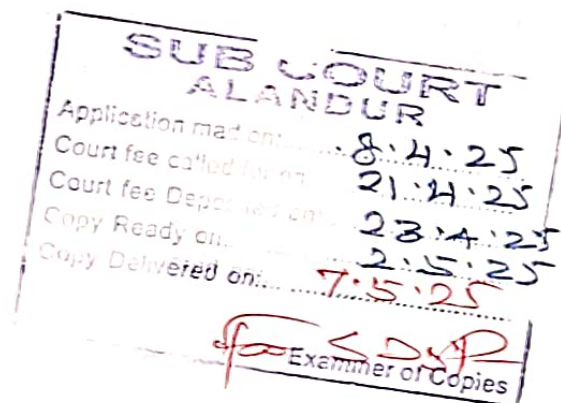 SUB COURT
ALANDUR
Application mad on:... 8.4.25
Court fee called for on... 21.4.25
Court fee Deposited on... 23.4.25
Copy Ready on... 2.5.25
Copy Delivered on:... 7.5.25
Examiner of Copies